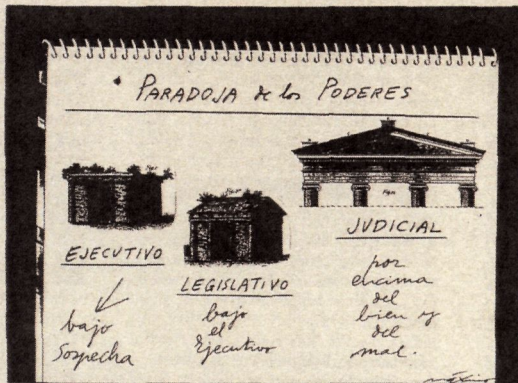 PARADOJA de los PODERES
EJECUTIVO
bajo
Sospecha
LEGISLATIVO
bajo
el
Ejecutivo
JUDICIAL
por
encima
del
bien y
del
mal.
máximo